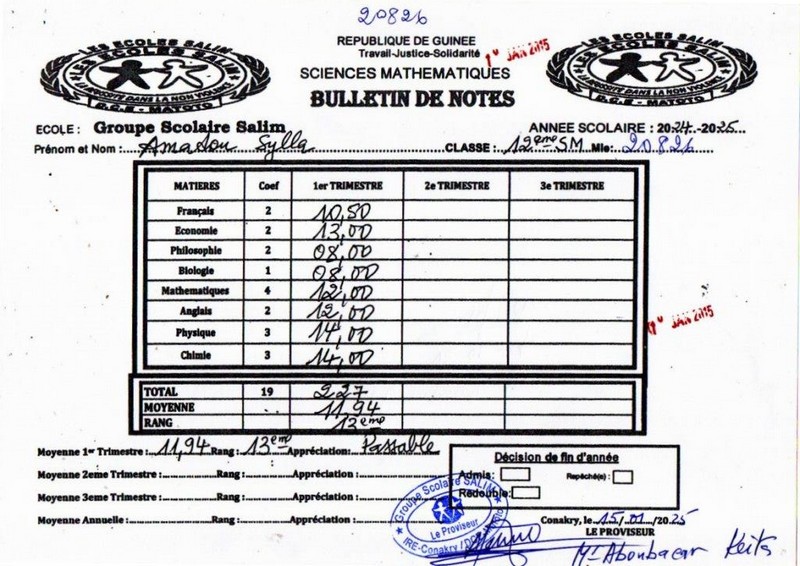 20826
REPUBLIQUE DE GUINEE
Travail-Justice-Solidarité
JAN 2015
SCIENCES MATHEMATIQUES
BULLETIN DE NOTES
LES ECOLES SALIM
LES ECOLES SALIM
D.C.E - MATOTO
LES ECOLES SALIM
LES ECOLES SALIM
D.C.E - MATOTO
ECOLE : Groupe Scolaire Salim ANNEE SCOLAIRE : 2024-2025
Prénom et Nom : Amadou Sylla CLASSE : 12ème SM Mle : 20826
MATIERES Coef 1er TRIMESTRE 2e TRIMESTRE 3e TRIMESTRE
Français 2 10,50
Economie 2 13,00
Philosophie 2 08,00
Biologie 1 08,00
Mathematiques 4 12,00
Anglais 2 12,00
Physique 3 14,00
Chimie 3 14,00
JAN 2015
TOTAL 19 227
MOYENNE 11,94
RANG 13ème
Moyenne 1er Trimestre : 11,94 Rang : 13ème Appréciation : Passable
Moyenne 2eme Trimestre : Rang : Appréciation :
Moyenne 3eme Trimestre : Rang : Appréciation :
Moyenne Annuelle : Rang : Appréciation :
Décision de fin d'année
Admis: Repêché(e) :
Redouble:
Groupe Scolaire SALIM
Le Proviseur
IRE-Conakry / DCE Matoto
Conakry, le 15/01/2025
LE PROVISEUR
Mr Aboubacar Keita